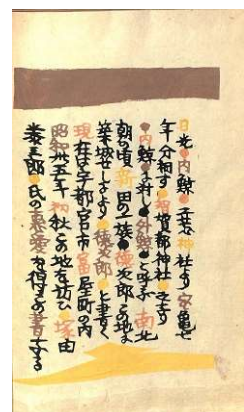 日光内鯨二荒神社より宝亀七
年分祠す智賀都神社と云す
内鯨に対し外鯨と呼ぶ南北
朝の頃新田の一族徳次郎この地に
築城せしより徳次郎と書く
現在は宇都宮市富屋町の内
昭和卅五年初秋この地を訪ひ塚田
泰三郎氏の を得て